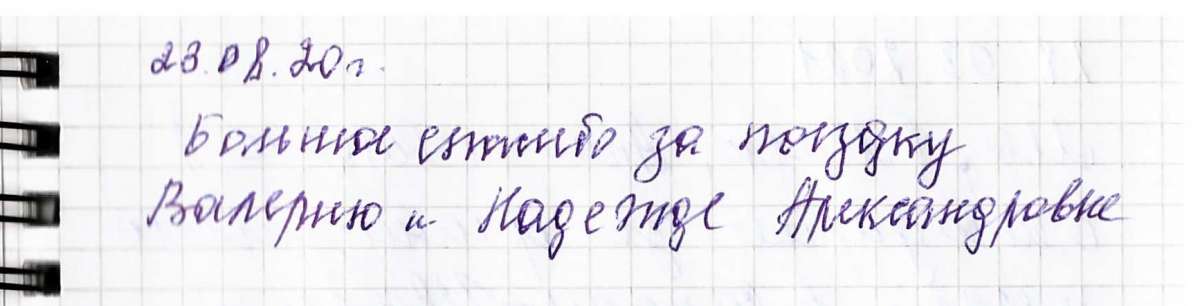 23.08.20г.
Большое спасибо за поездку
Валерию и Надежде Александровне